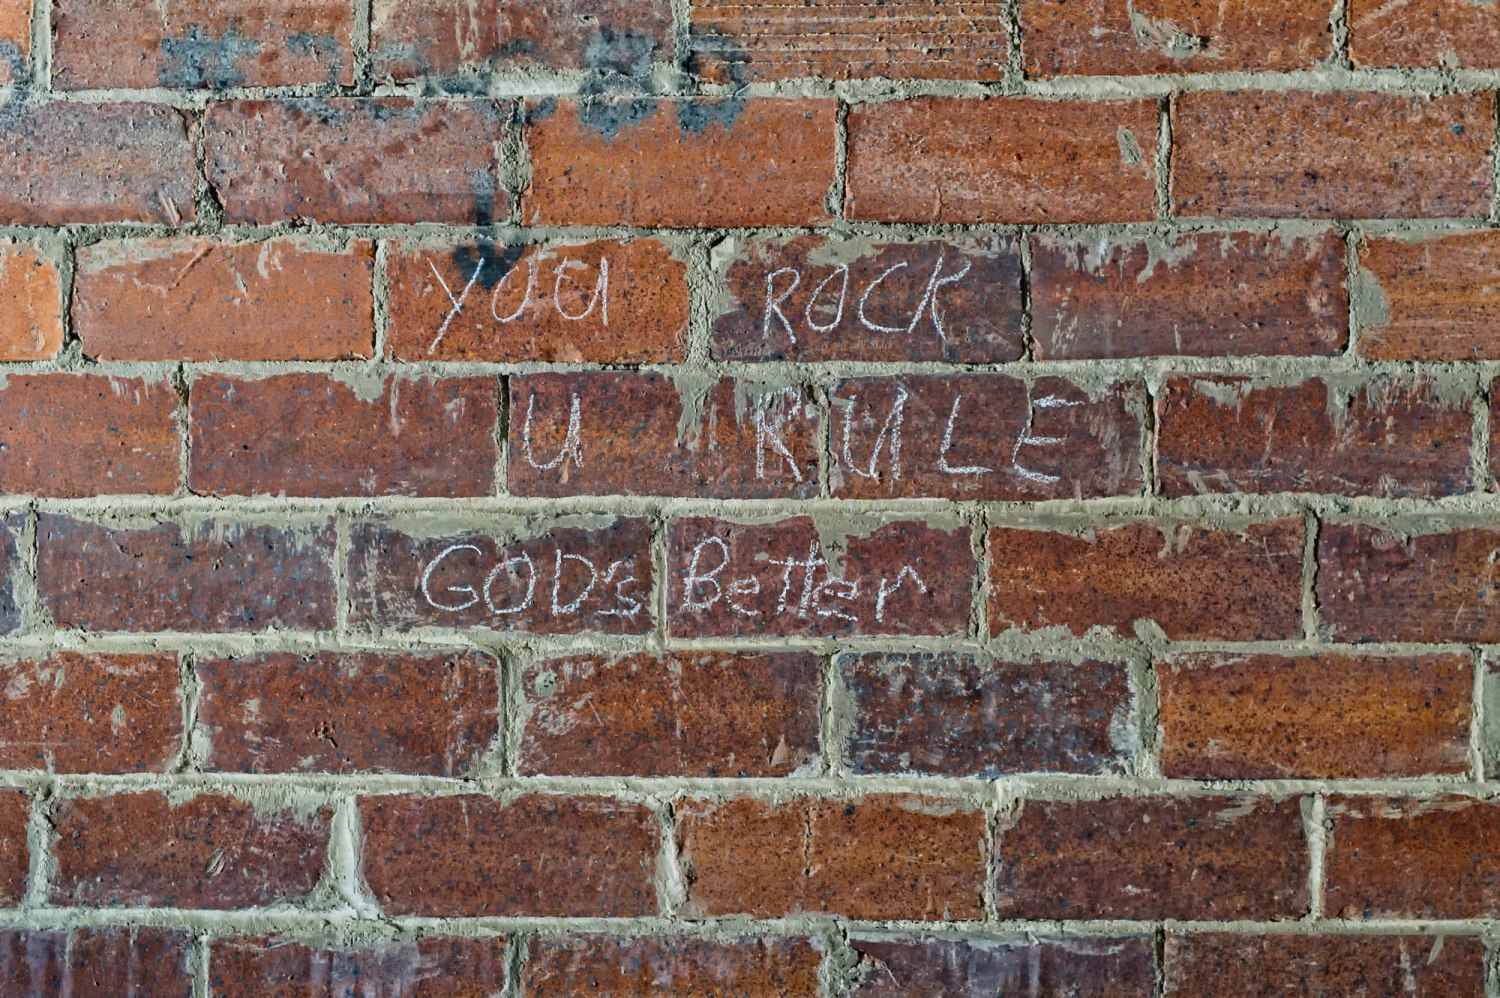 YOU ROCK
U RULE
GOD's Better